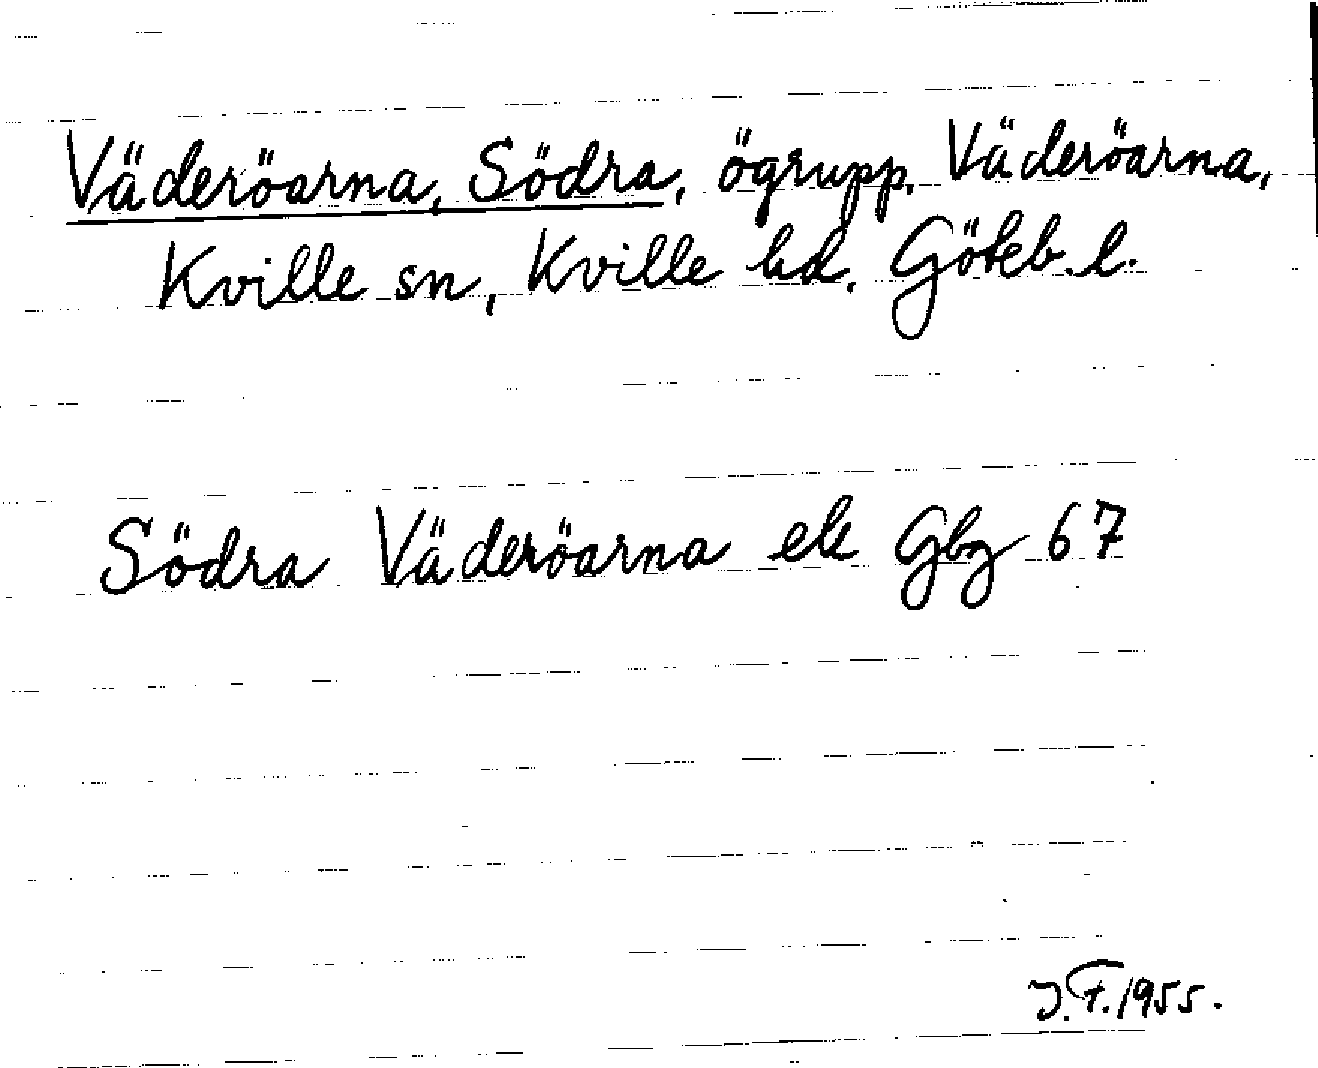 Väderöarna, Södra, ögrupp, Väderöarna,
Kville sn, Kville hd, Göteb. l.
Södra Väderöarna ek Gbg 67
J.F. 1955.